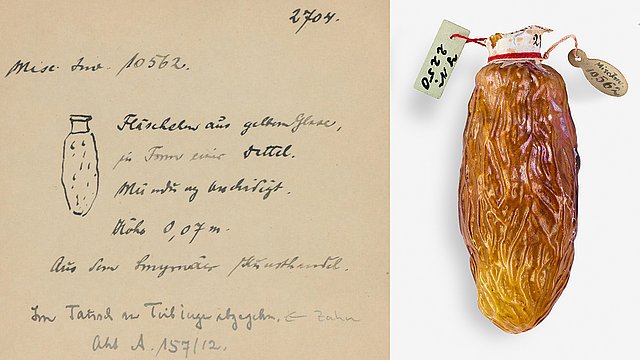 2704.
Misc. Inv. 10562.
Fläschchen aus gelbem Glase,
in Form einer Dattel.
Mündung beschädigt.
Höhe 0,07 m.
Aus dem Smyrnäer Kunsthandel.
Im Tausch an Tübingen abgegeben. Zahn
Akt A. 157/12.
2250
10562